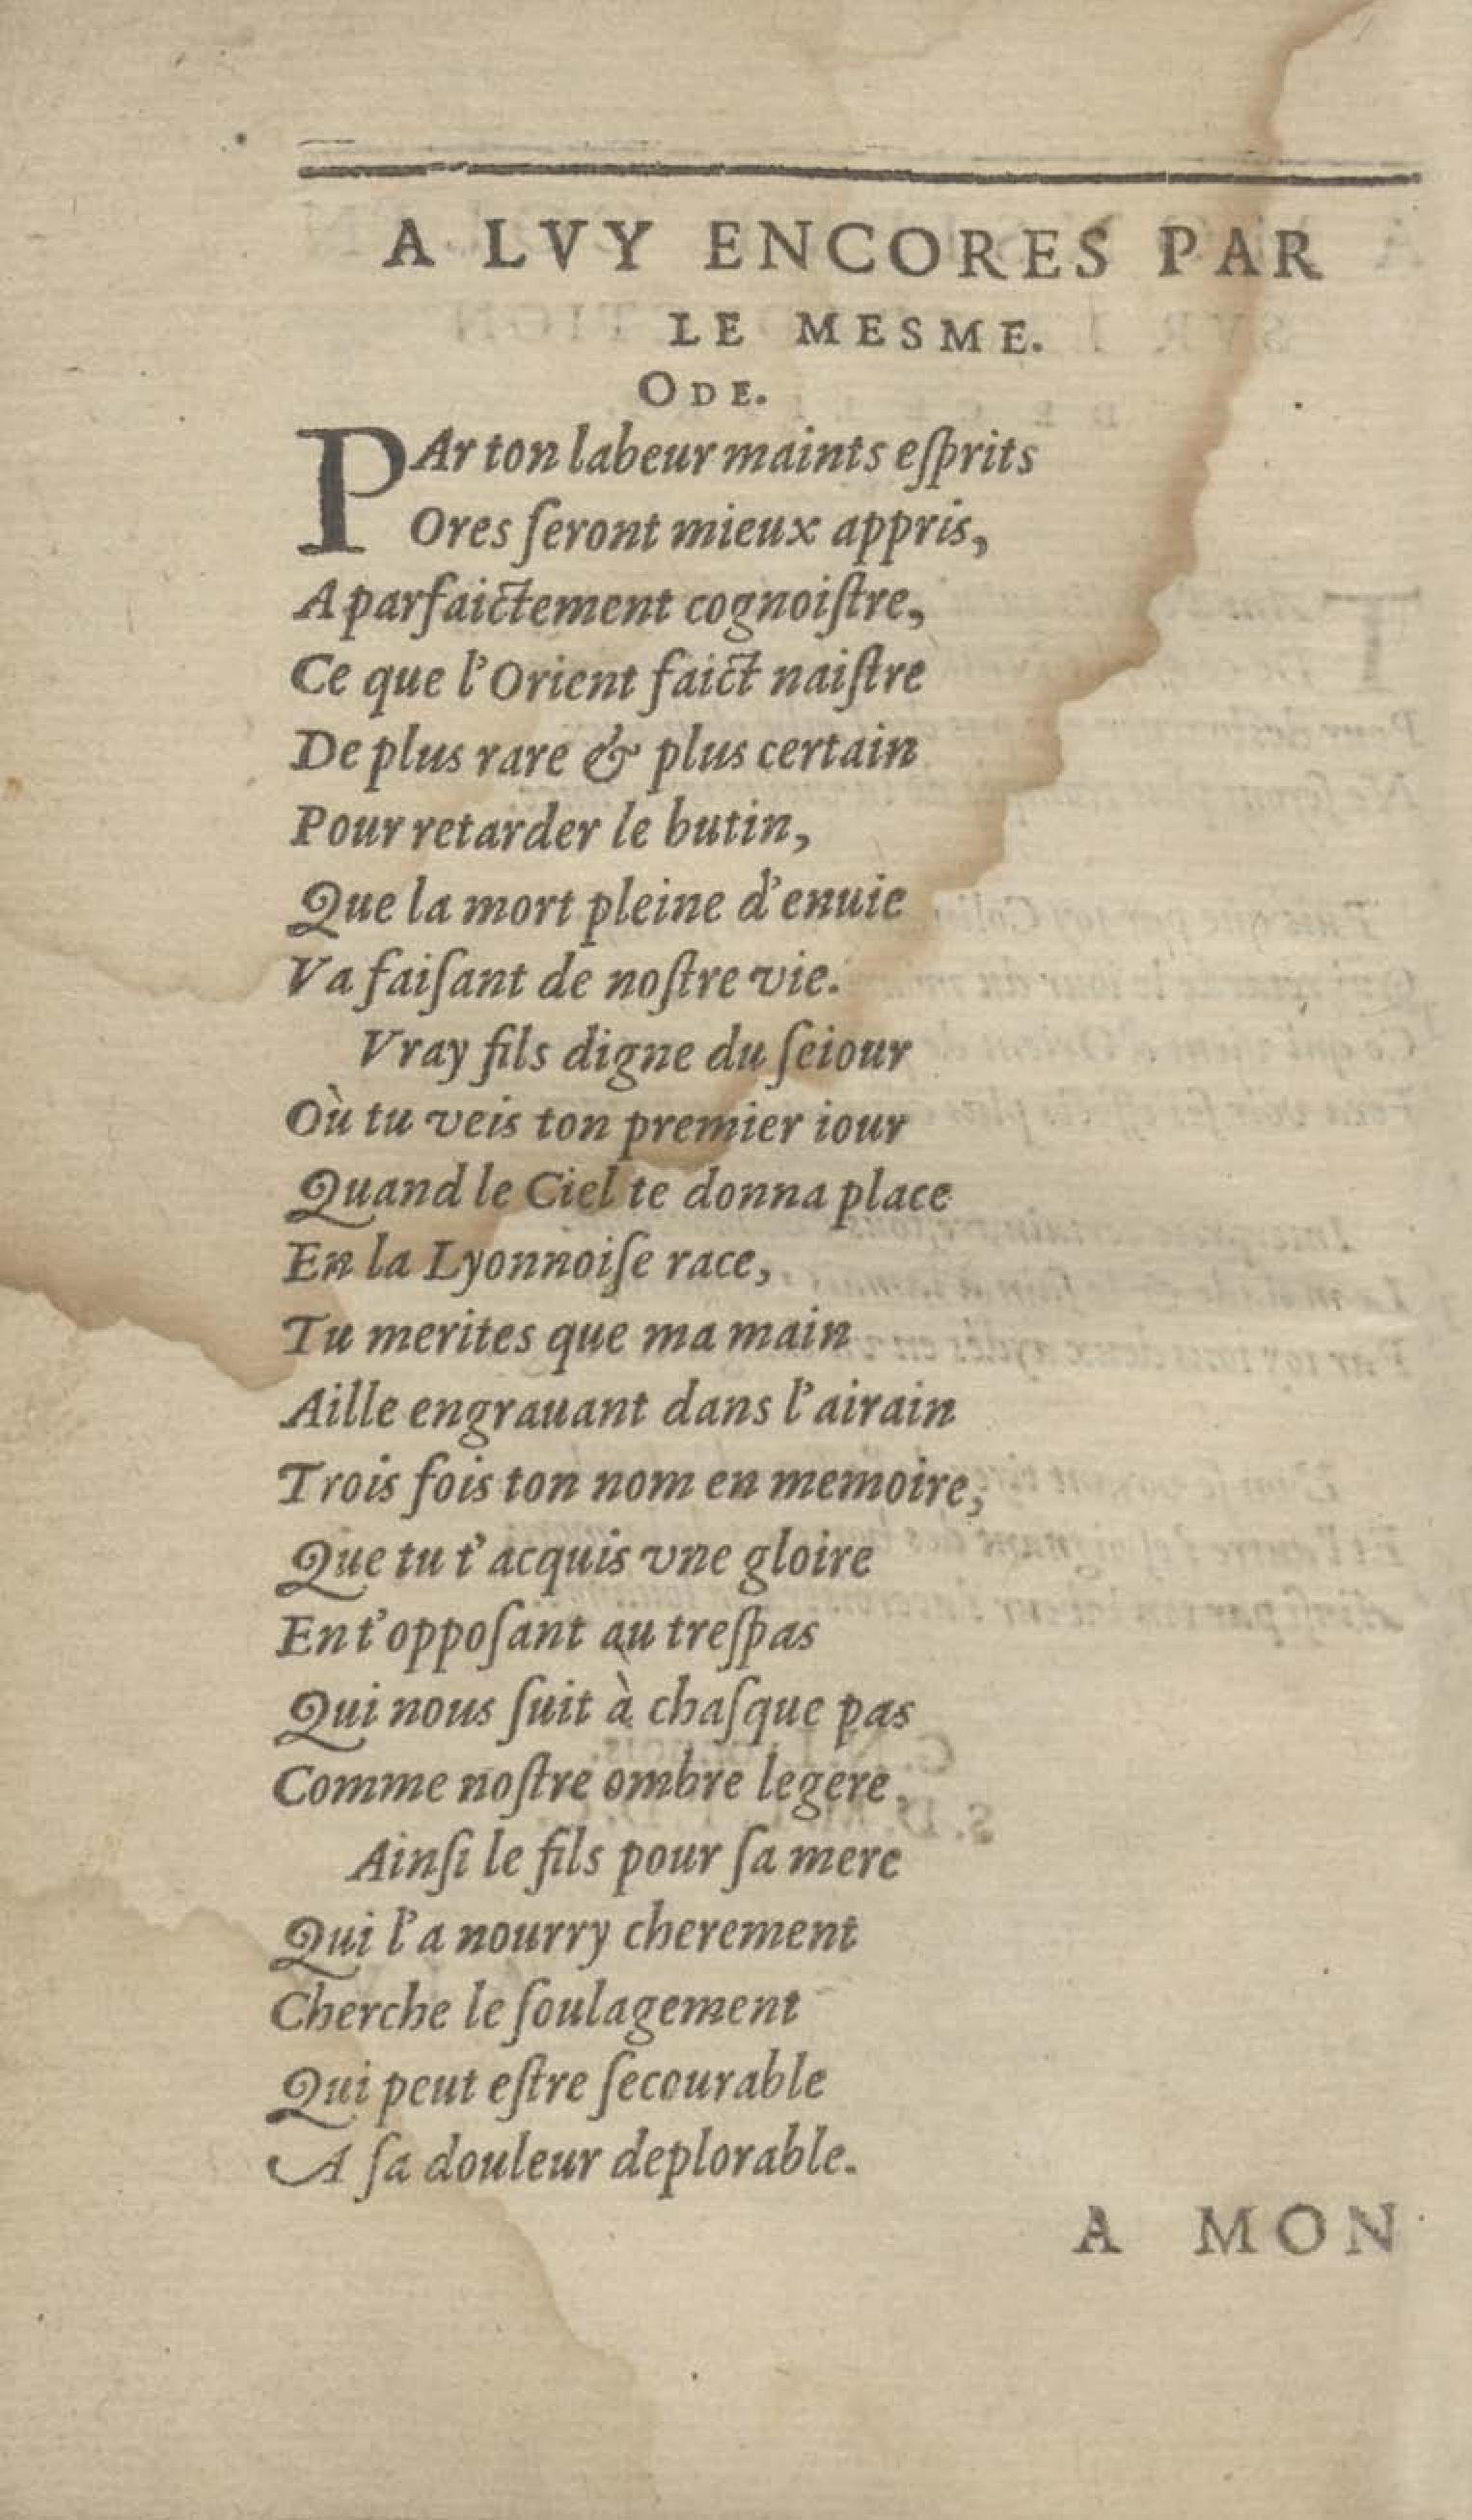 A LVY ENCORES PAR
LE MESME.
ODE.
PAr ton labeur maints eſprits
Ores ſeront mieux appris,
A parfaictement cognoiſtre,
Ce que l'Orient faict naiſtre
De plus rare & plus certain
Pour retarder le butin,
Que la mort pleine d'enuie
Va faiſant de noſtre vie.
Vray fils digne du ſeiour
Où tu veis ton premier iour
Quand le Ciel te donna place
En la Lyonnoiſe race,
Tu merites que ma main
Aille engrauant dans l'airain
Trois fois ton nom en memoire,
Que tu t'acquis vne gloire
En t'oppoſant au treſpas
Qui nous ſuit à chaſque pas
Comme noſtre ombre legere.
Ainſi le fils pour ſa mere
Qui l'a nourry cherement
Cherche le ſoulagement
Qui peut eſtre ſecourable
A ſa douleur deplorable.
A MON